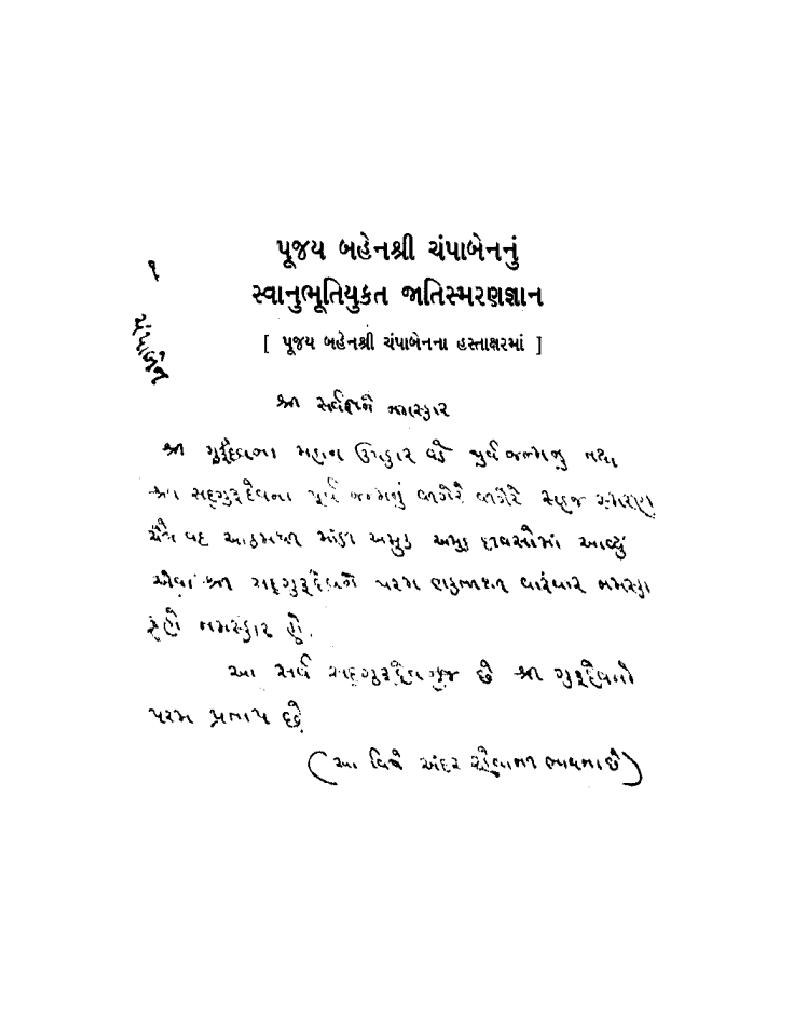 પૂજય બહેનશ્રી ચંપાબેનનું
૧
સ્વાનુભૂતિયુકત જાતિસ્મરણજ્ઞાન
ચંપાબેન
[ પૂજય બહેનશ્રી ચંપાબેનના હસ્તાક્ષરમાં ]
શ્રી સર્વજ્ઞને નમસ્કાર
શ્રી ગુરૂદેવના મહાન ઉપકાર વડે પુર્વ જન્મનુ તથા
શ્રી સદ્ગુરૂદેવના પૂર્વ જન્મનું વગેરે વગેરે સહજ સ્મરણ
ચૈત્ર વદ આઠમથી માંડી અમુક અમુક દીવસોમાં આવ્યું
એવા શ્રી સદ્ગુરૂદેવને પરમ વારંવાર નમસ્કા
ર હો નમસ્કાર હો.
આ સર્વ સદ્ગુરૂદેવનુજ છે શ્રી ગુરૂદેવનો
પરમ પ્રતાપ છે
(આ વિષે અંદર રહેવાની ભાવના છે)